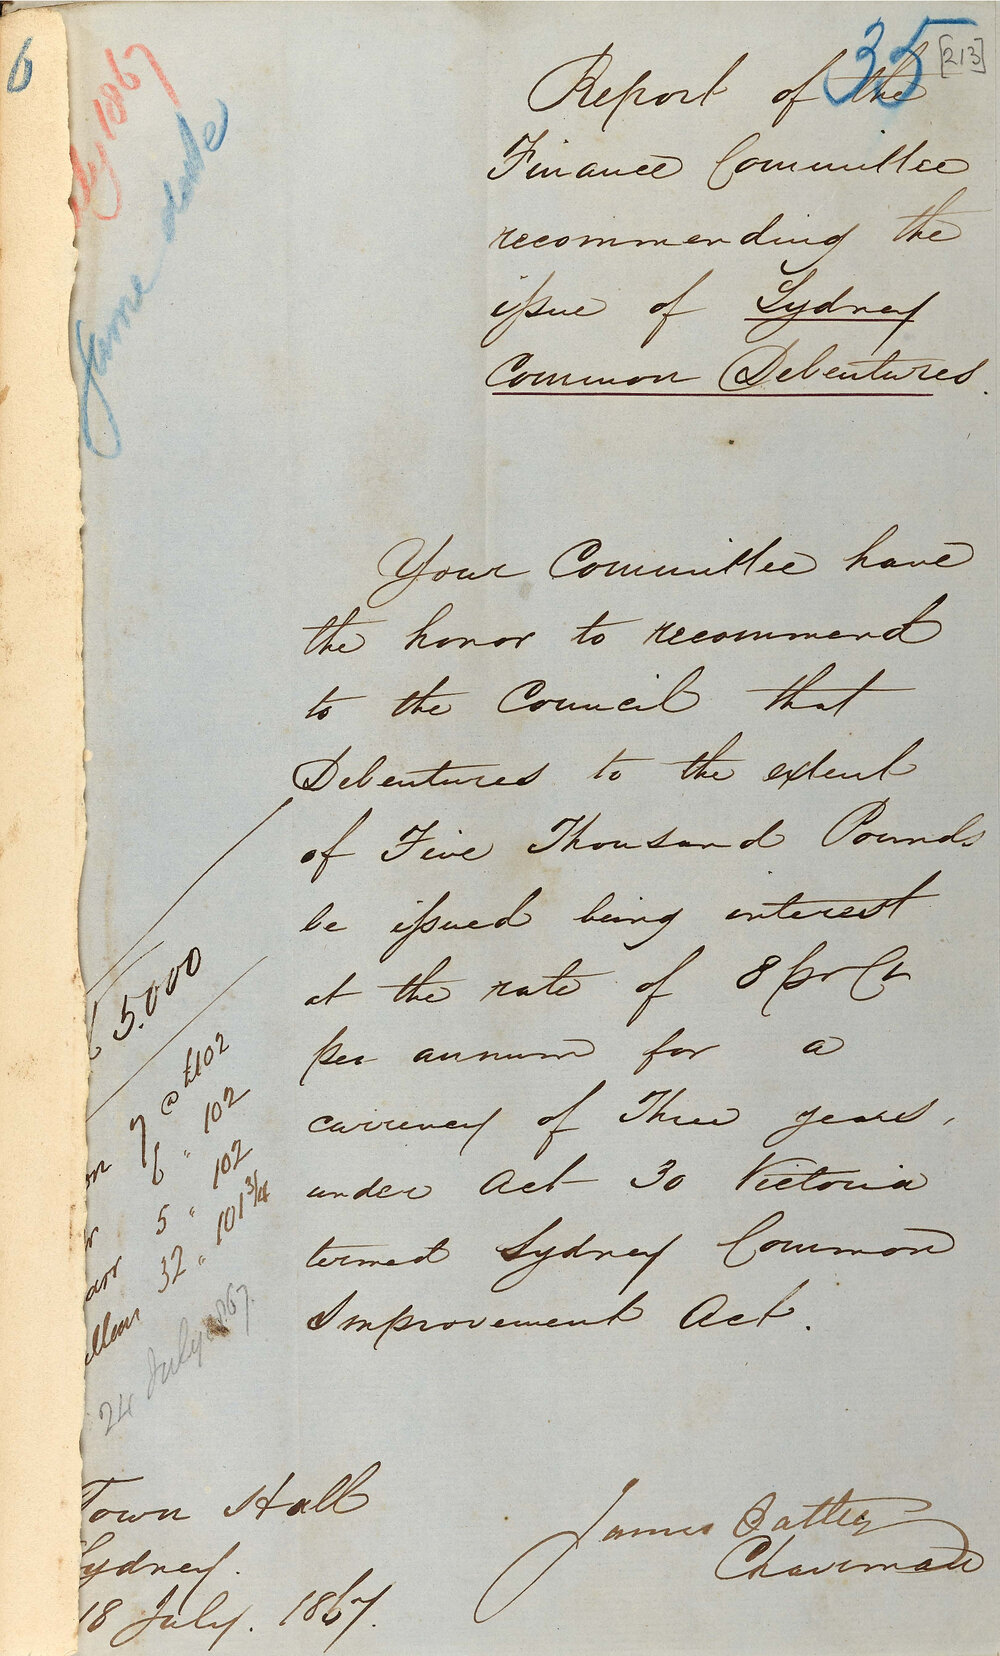 6
35
[213]
July 1867
same date
Report of the
Finance Committee
recommending the
issue of Sydney
Common Debentures.
Your Committee have
the honor to recommend
to the Council that
Debentures to the extent
of Five Thousand Pounds
be issued being interest
at the rate of 8 pr Ct
per annum for a
currency of Three years,
under Act 30 Victoria
termed Sydney Common
Improvement Act.
£ 5.000
7 @ £102
6 " 102
5 " 102
32 " 101 3/4
24 July 1867.
Town Hall
Sydney.
18 July. 1867.
James Oatley
Chairman